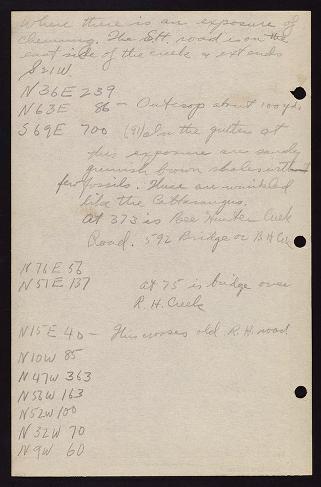 Where there is an exposure of
Chemung. The S.H. road is on the
east side of the creek & extends
S21W
N36E 239
N63E 86 - Outcrop about 100 yds
S69E 700 (91) In the gutter at
this exposure are sandy
greenish brown shales with
few fossils. These are wrinkled
like the Cattaraugus.
At 373 is Bee Hunter Creek
Road. 592 Bridge or B H Cr.
N76E 56
N51E 137 at 75 is bridge over
R. H. Creek
N15E 40 - This crosses old R. H. road
N10W 85
N47W 363
N56W 163
N52W 100
N32W 70
N9W 60